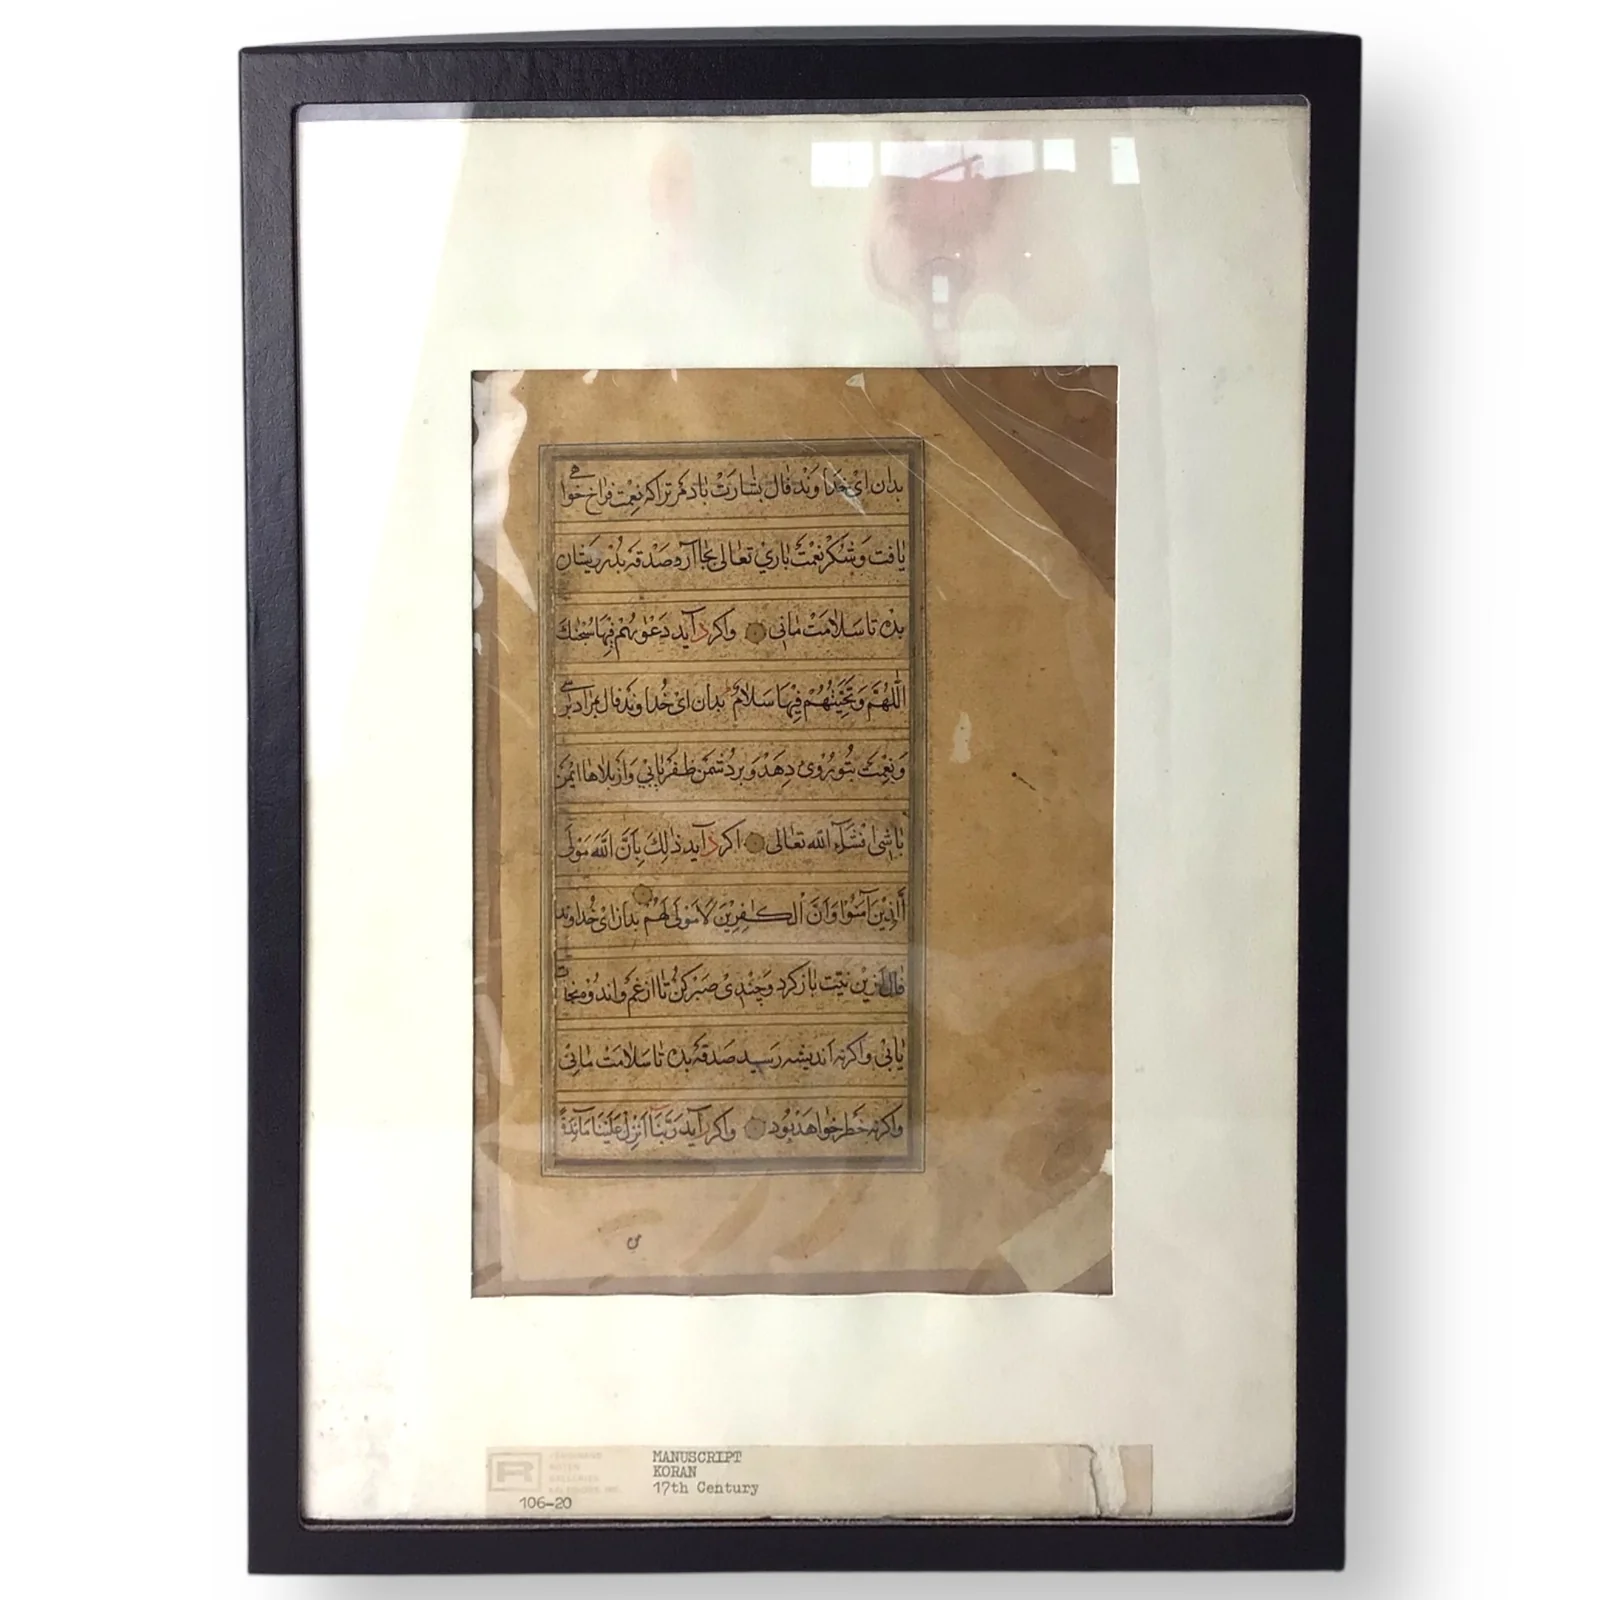 بدان ای خداوند فال بشارت باد مر ترا که نعمت فراخ خواهی
یافت و شکر نعمت باری تعالی بجا آر و صدقه بدرویشان
بده تا سلامت مانی واکر د آید دَعْوٰیهُمْ فِیهَا سُبْحٰنَكَ
اللّٰهُمَّ وَتَحِیَّتُهُمْ فِیهَا سَلَامٌ بدان ای خدا وند فال بمراد برسی
و نعمت بتو روی دهد و بر دشمن ظفر یابی و از بلاها ایمن
باشی انشآء الله تعالی اکر د آید ذٰلِكَ بِاَنَّ اللّٰهَ مَوْلَی
الَّذِینَ آمَنُوا وَاَنَّ الْكٰفِرِینَ لَا مَوْلٰی لَهُمْ بدان ای خداوند
فال ازین نیّت باز کرد و چندی صبر کن تا از غم و اندوه نجات
یابی واکرنه اندیشه رسید صدقه بده تا سلامت مانی
واکرنه خطر خواهد بود واکر آید رَبَّنَا اَنْزِلْ عَلَیْنَا مَآئِدَةً
R
106-20
MANUSCRIPT
KORAN
17th Century